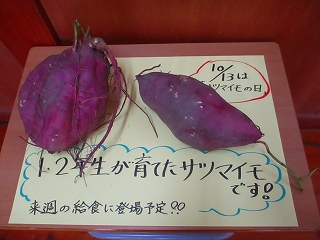 10/13は
サツマイモの日
1.2年生が育てたサツマイモ
です!
来週の給食に登場予定!!